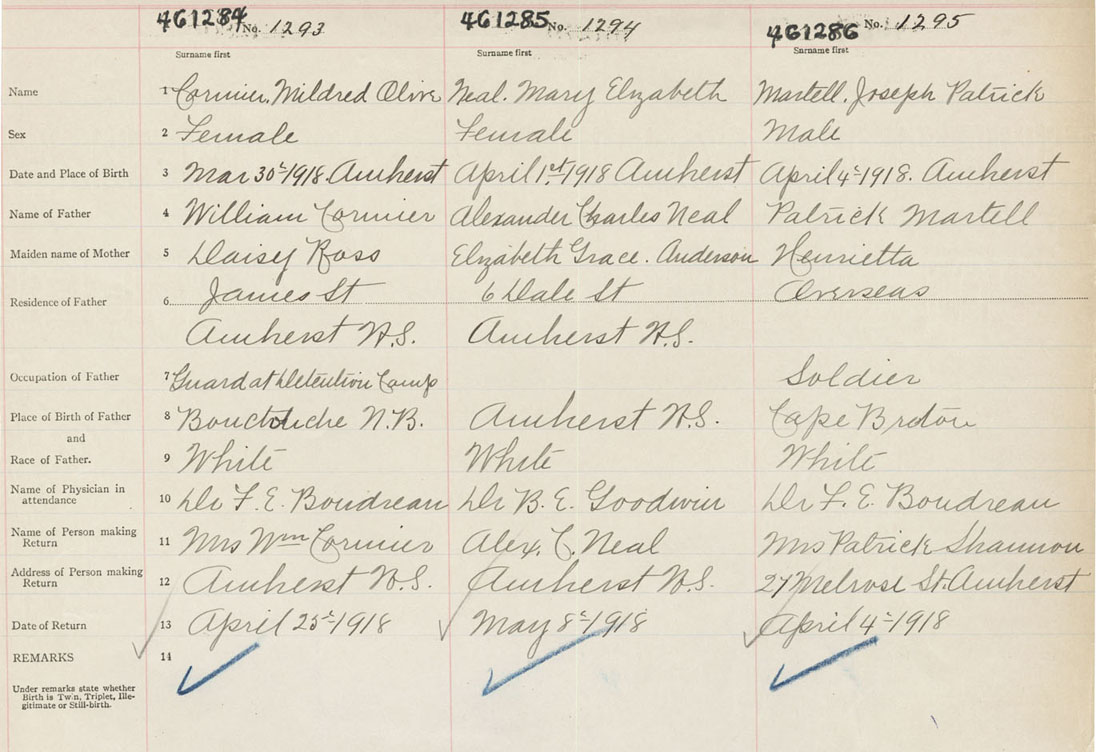 461284 No. 1293 461285 No. 1294 461286 No. 1295
Surname first Surname first Surname first
Name 1 Cormier, Mildred Olive Neal. Mary Elizabeth Martell. Joseph Patrick
Sex 2 Female Female Male
Date and Place of Birth 3 Mar 30t 1918. Amherst April 1st 1918 Amherst April 4t 1918. Amherst
Name of Father 4 William Cormier Alexander Charles Neal Patrick Martell
Maiden name of Mother 5 Daisy Ross Elizabeth Grace. Anderson Henrietta
Residence of Father 6 James St 6 Dale St Overseas
Amherst N.S. Amherst N.S.
Occupation of Father 7 Guard at Detention Camp Soldier
Place of Birth of Father 8 Bouctouche N.B. Amherst N.S. Cape Breton
and
Race of Father. 9 White White White
Name of Physician in attendance 10 Dr F. E. Boudreau Dr B. E. Goodwin Dr F. E. Boudreau
Name of Person making Return 11 Mrs Wm Cormier Alex. C. Neal Mrs Patrick Shannon
Address of Person making Return 12 Amherst N.S. Amherst N.S. 27 Melrose St. Amherst
Date of Return 13 April 25t 1918 May 8t 1918 April 4t 1918
REMARKS 14
Under remarks state whether
Birth is Twin, Triplet, Ille-
gitimate or Still-birth.